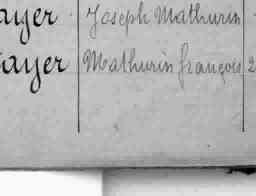 ayer Joseph Mathurin
ayer Mathurin françois 2